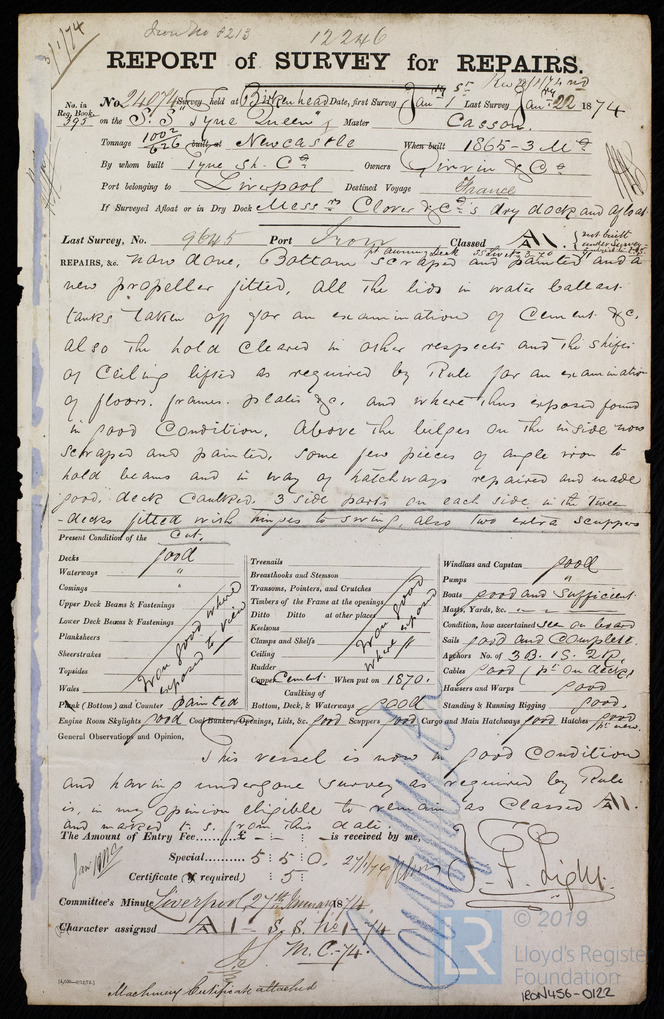 Iron No 8213
12246
3/1/74
REPORT of SURVEY for REPAIRS.
No. 24074 Survey held at Birkenhead Date, first Survey Jan ry 1 st Last Survey Jan ry 22 1874
No. in Reg. Book. 395 on the S.S. "Tyne Queen" Master Casson.
Tonnage 1002/626 built at Newcastle When built 1865-3 Mo
By whom built Tyne Sh. Co Owners Girvin & Co
Port belonging to Liverpool Destined Voyage France
If Surveyed Afloat or in Dry Dock Messrs Clover & Co's dry dock and afloat
Last Survey, No. 9645 Port Iron Classed A 1. not built under survey
pt awning deck
REPAIRS, &c. now done, Bottom scraped and painted and a
new propeller fitted, all the lids in water ballast
tanks taken off for an examination of Cement &c.
also the hold cleared in other respects and the shifts
of Ceiling lifted as required by Rule for an examination
of floors. frames. plates &c. and where thus exposed found
in good Condition, above the bilges on the inside now
scraped and painted, some few pieces of angle iron to
hold beams and in way of hatchways repaired and made
good. deck caulked. 3 side ports on each side in the twee-
-decks fitted with hinges to swing, also two extra scuppers
cut.
Present Condition of the
Decks good
Waterways "
Comings
Upper Deck Beams & Fastenings
Lower Deck Beams & Fastenings
Planksheers
Sheerstrakes
Topsides
Wales
Iron good where exposed to view
Plank (Bottom) and Counter painted
Treenails
Breasthooks and Stemson
Transoms, Pointers, and Crutches
Timbers of the Frame at the openings
Ditto Ditto at other places
Keelsons
Clamps and Shelfs
Ceiling
Rudder
Iron good where exposed
Copper Cement When put on 1870.
Caulking of Bottom, Deck, & Waterways good
Windlass and Capstan good
Pumps "
Boats good and Sufficient
Masts, Yards, &c.
Condition, how ascertained see on board
Sails good and Complete.
Anchors No. of 3B. 1S. 2K.
Cables good (pt on deck)
Hausers and Warps good
Standing & Running Rigging good.
Engine Room Skylights good Coal Bunker, Openings, Lids, &c. good Scuppers good Cargo and Main Hatchways good Hatches good pt new.
General Observations and Opinion,
This vessel is now in good Condition
and having undergone survey as required by Rule
is, in my opinion eligible to remain as Classed A 1.
and marked t.s. from this date.
The Amount of Entry Fee......£ - : - : - is received by me,
Special...... 5 : 5 : 0. 27/1/74
Certificate (if required) : 5 :
J. F. Light.
Committee's Minute Liverpool 27th January 1874
Character assigned A 1 - S.S. No 1-74
M.C.-74.
Machinery Certificate attached
© 2019
LR
Lloyd's Register
Foundation
IRON456-0122